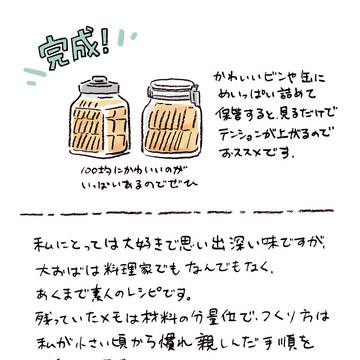 完成!
かわいいビンや缶に
めいっぱい詰めて
保管すると、見るだけで
テンションが上がるので
おススメです。
100均にかわいいのが
いっぱいあるのでぜひ
私にとっては大好きで思い出深い味ですが、
大おばは料理家でもなんでもなく、
あくまで素人のレシピです。
残っていたメモは材料の分量位で、つくり方は
私が小さい頃から慣れ親しんだ手順を